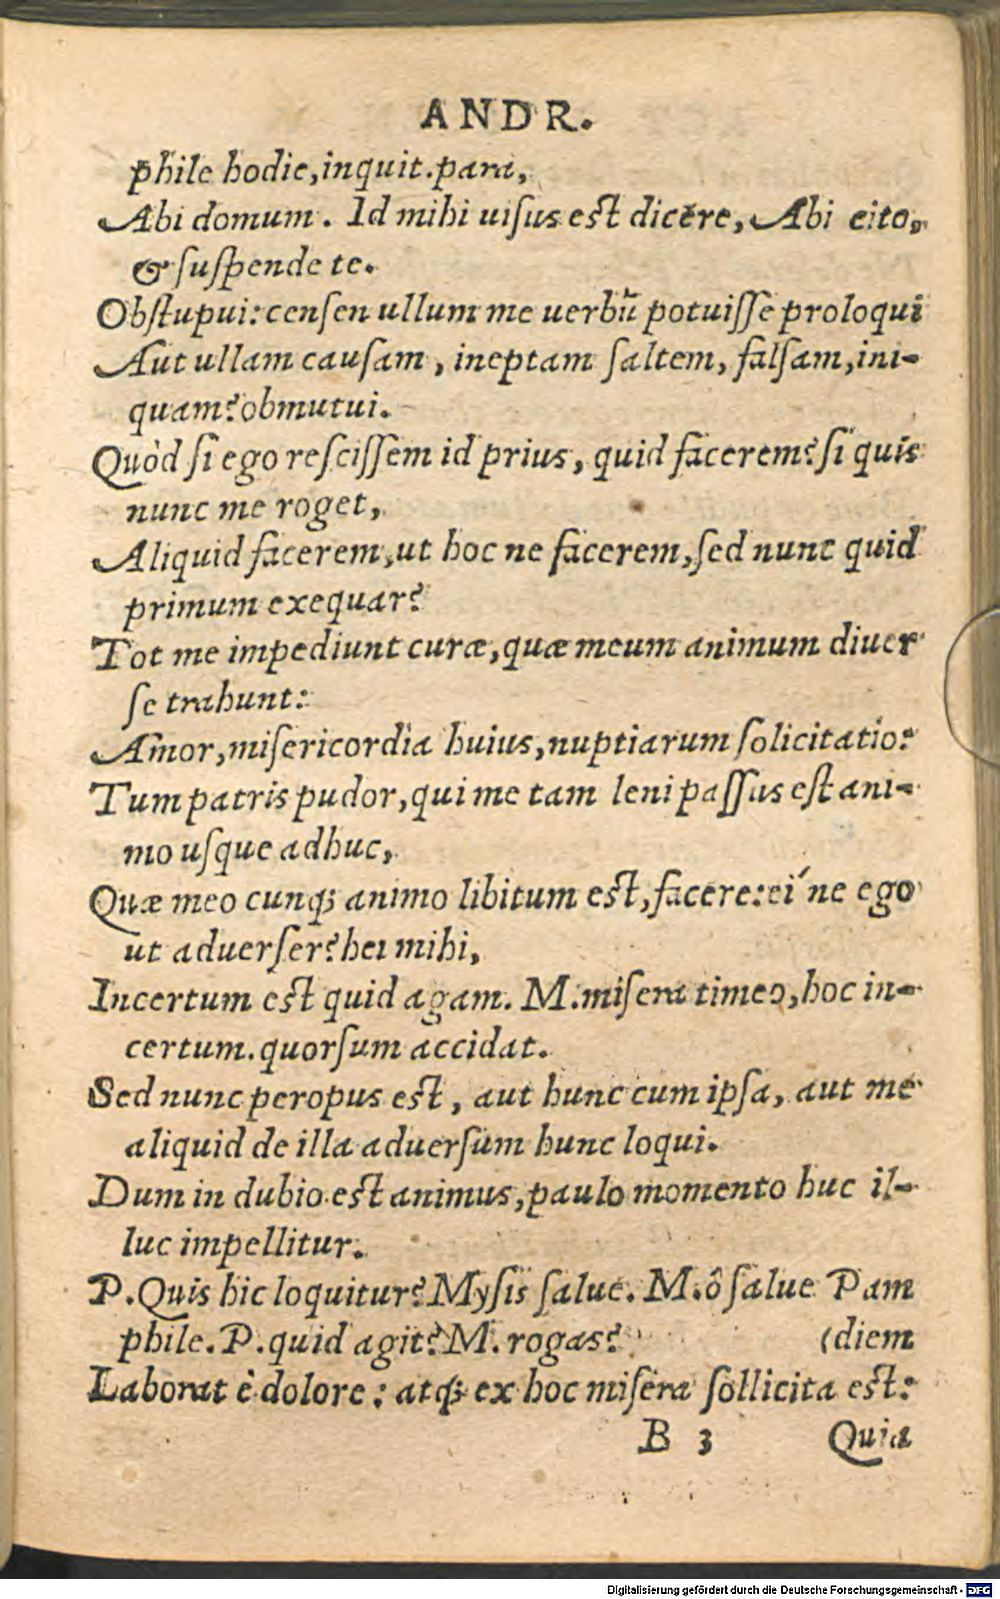 ANDR.
phile hodie, inquit. para,
Abi domum. Id mihi uiſus eſt dicere, Abi cito,
& ſuſpende te.
Obſtupui: cenſen ullum me uerbū potuiſſe proloqui
Aut ullam cauſam, ineptam ſaltem, falſam, ini-
quam? obmutui.
Quòd ſi ego reſciſſem id prius, quid facerem? ſi quis
nunc me roget,
Aliquid facerem, ut hoc ne facerem, ſed nunc quid
primum exequar?
Tot me impediunt curæ, quæ meum animum diuer
ſe trahunt:
Amor, miſericordia huius, nuptiarum ſolicitatio:
Tum patris pudor, qui me tam leni paſſus eſt ani-
mo uſque adhuc,
Quæ meo cunq; animo libitum eſt, facere: eí ne ego
ut aduerſer? hei mihi,
Incertum eſt quid agam. M. miſera timeo, hoc in-
certum. quorſum accidat.
Sed nunc peropus eſt, aut hunc cum ipſa, aut me
aliquid de illa aduerſum hunc loqui.
Dum in dubio eſt animus, paulo momento huc il-
luc impellitur.
P. Quis hic loquitur? Myſis ſalue. M. ô ſalue Pam
phile. P. quid agit? M. rogas? (diem
Laborat è dolore: atq; ex hoc miſera ſollicita eſt:
B 3 Quia
Digitalisierung gefördert durch die Deutsche Forschungsgemeinschaft - DFG